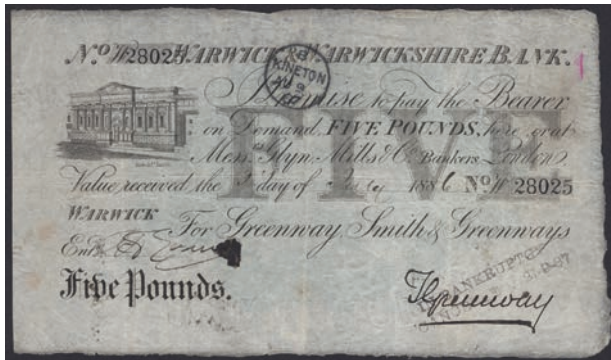 No. W 28025 WARWICK & WARWICKSHIRE BANK.
KINETON
I Promise to pay the Bearer
on Demand, FIVE POUNDS, here or at
Messrs. Glyn, Mills & Co. Bankers London.
Value received the day of 1886 No. W 28025
FIVE
WARWICK For Greenway, Smith & Greenways
Entd.
Five Pounds.
BANKRUPTCY
Greenway